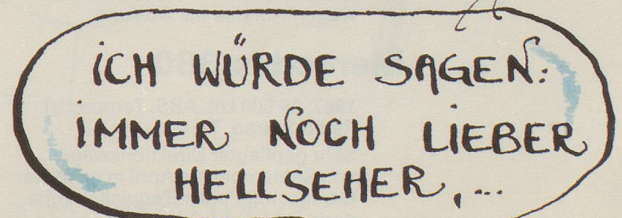 iCH WÜRDE SAGEN:
IMMER NOCH LIEBER
HELLSEHER,...